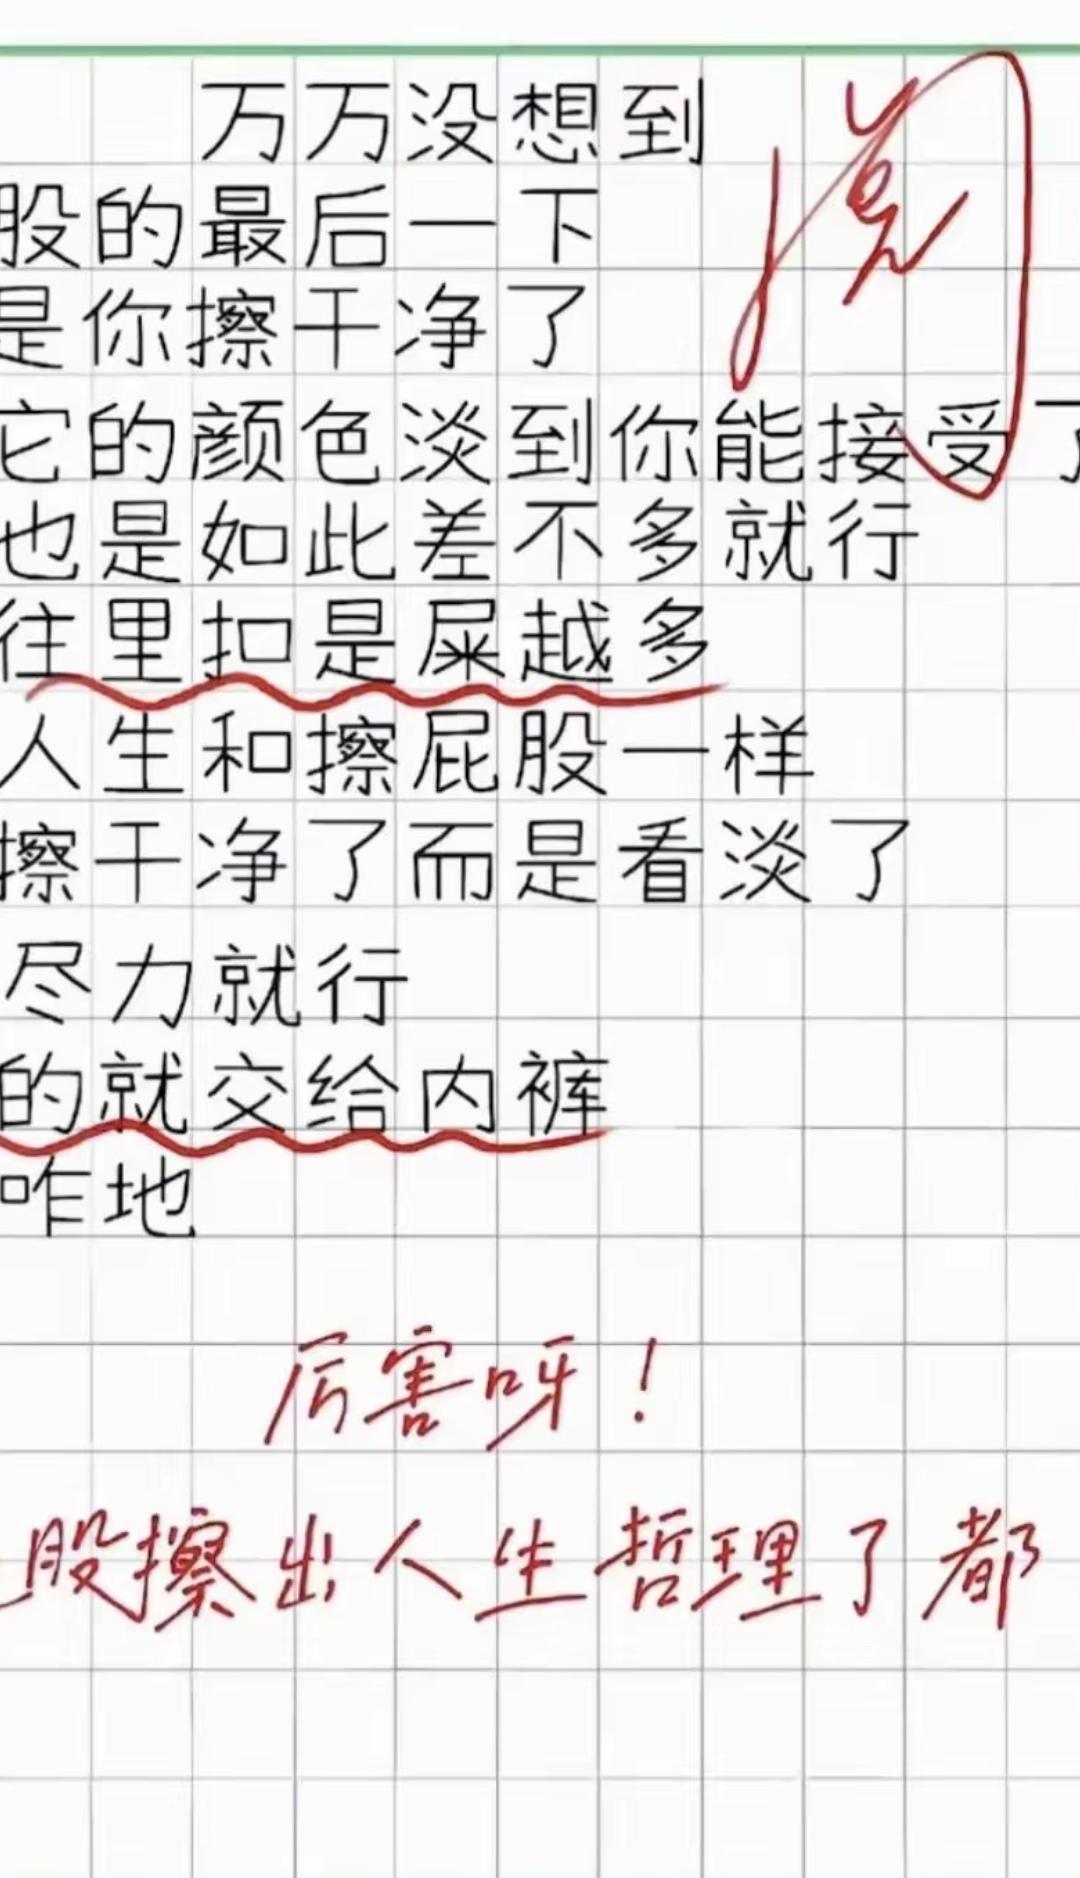 万万没想到
阅
股的最后一下
是你擦干净了
它的颜色淡到你能接受了
也是如此差不多就行
往里扣是屎越多
人生和擦屁股一样
擦干净了而是看淡了
尽力就行
的就交给内裤
咋地
厉害呀！
股擦出人生哲理了都